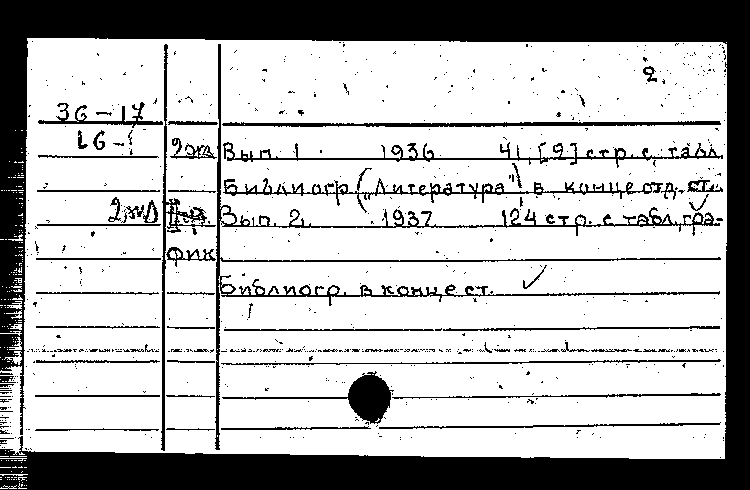 2.
36-17
16-
2эк Вып. 1 1936 41, [2] стр. с табл.
Библиогр ("Литература") в конце отд. ст.
Вып. 2. 1937 124 стр. с табл, гра-
фик
Библиогр. в конце ст. ✓